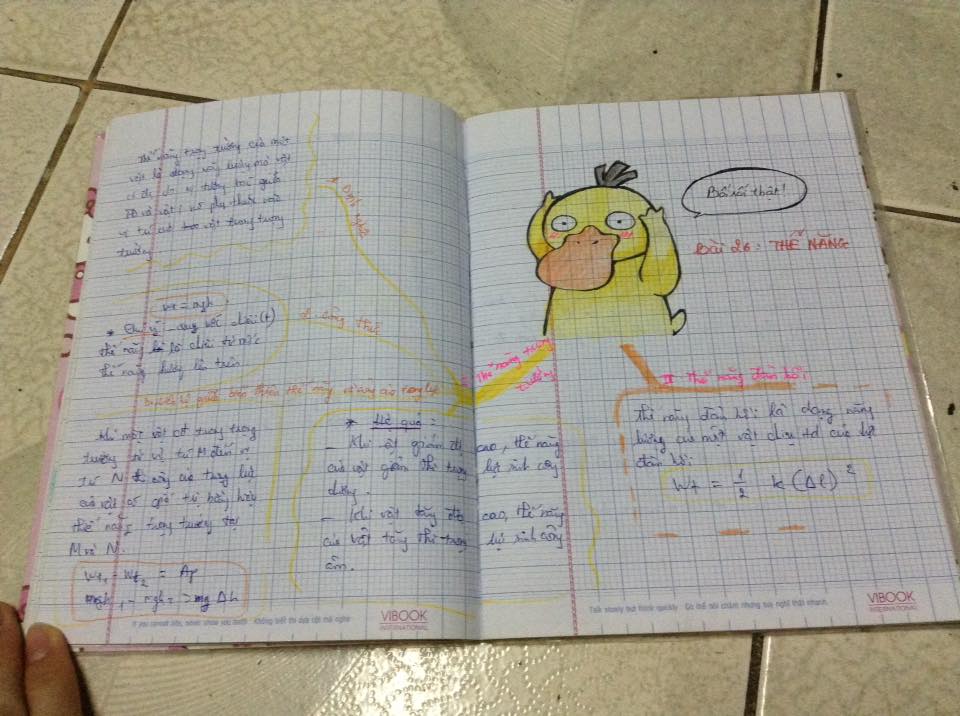 Thế năng trọng trường của một
vật là dạng năng lượng mà vật
có do tương tác giữa
TĐ và vật; nó phụ thuộc vào
vị trí của vật trong trọng
trường
1. Định nghĩa
Wt = mgh
* Chú ý
thế năng là
thế năng hướng lên trên.
2. công thức
3. Liên hệ giữa biến thiên thế năng và công của trọng lực
Khi một vật cđ trong trọng
trường từ vị trí M đến vị
trí N thì công của trọng lực
của vật có giá trị bằng hiệu
thế năng trọng trường tại
M và N.
Wt1 - Wt2 = Ap
mgh1 - mgh2 = mg Δh
* Hệ quả:
- Khi vật giảm độ cao, thế năng
của vật giảm thì trọng lực sinh công
dương.
- Khi vật tăng độ cao, thế năng
của vật tăng thì trọng lực sinh công
âm.
If you cannot bite, never show your teeth - Không biết thì dựa cột mà nghe
VIBOOK
INTERNATIONAL
Bối rối thật!
Bài 26: THẾ NĂNG
I. Thế năng trọng
trường
II Thế năng đàn hồi:
Thế năng đàn hồi: là dạng năng
lượng của một vật chịu td của lực
đàn hồi.
Wt = 1/2 k (Δl)²
Talk slowly but think quickly - Có thể nói chậm nhưng hãy nghĩ thật nhanh.
VIBOOK
INTERNATIONAL